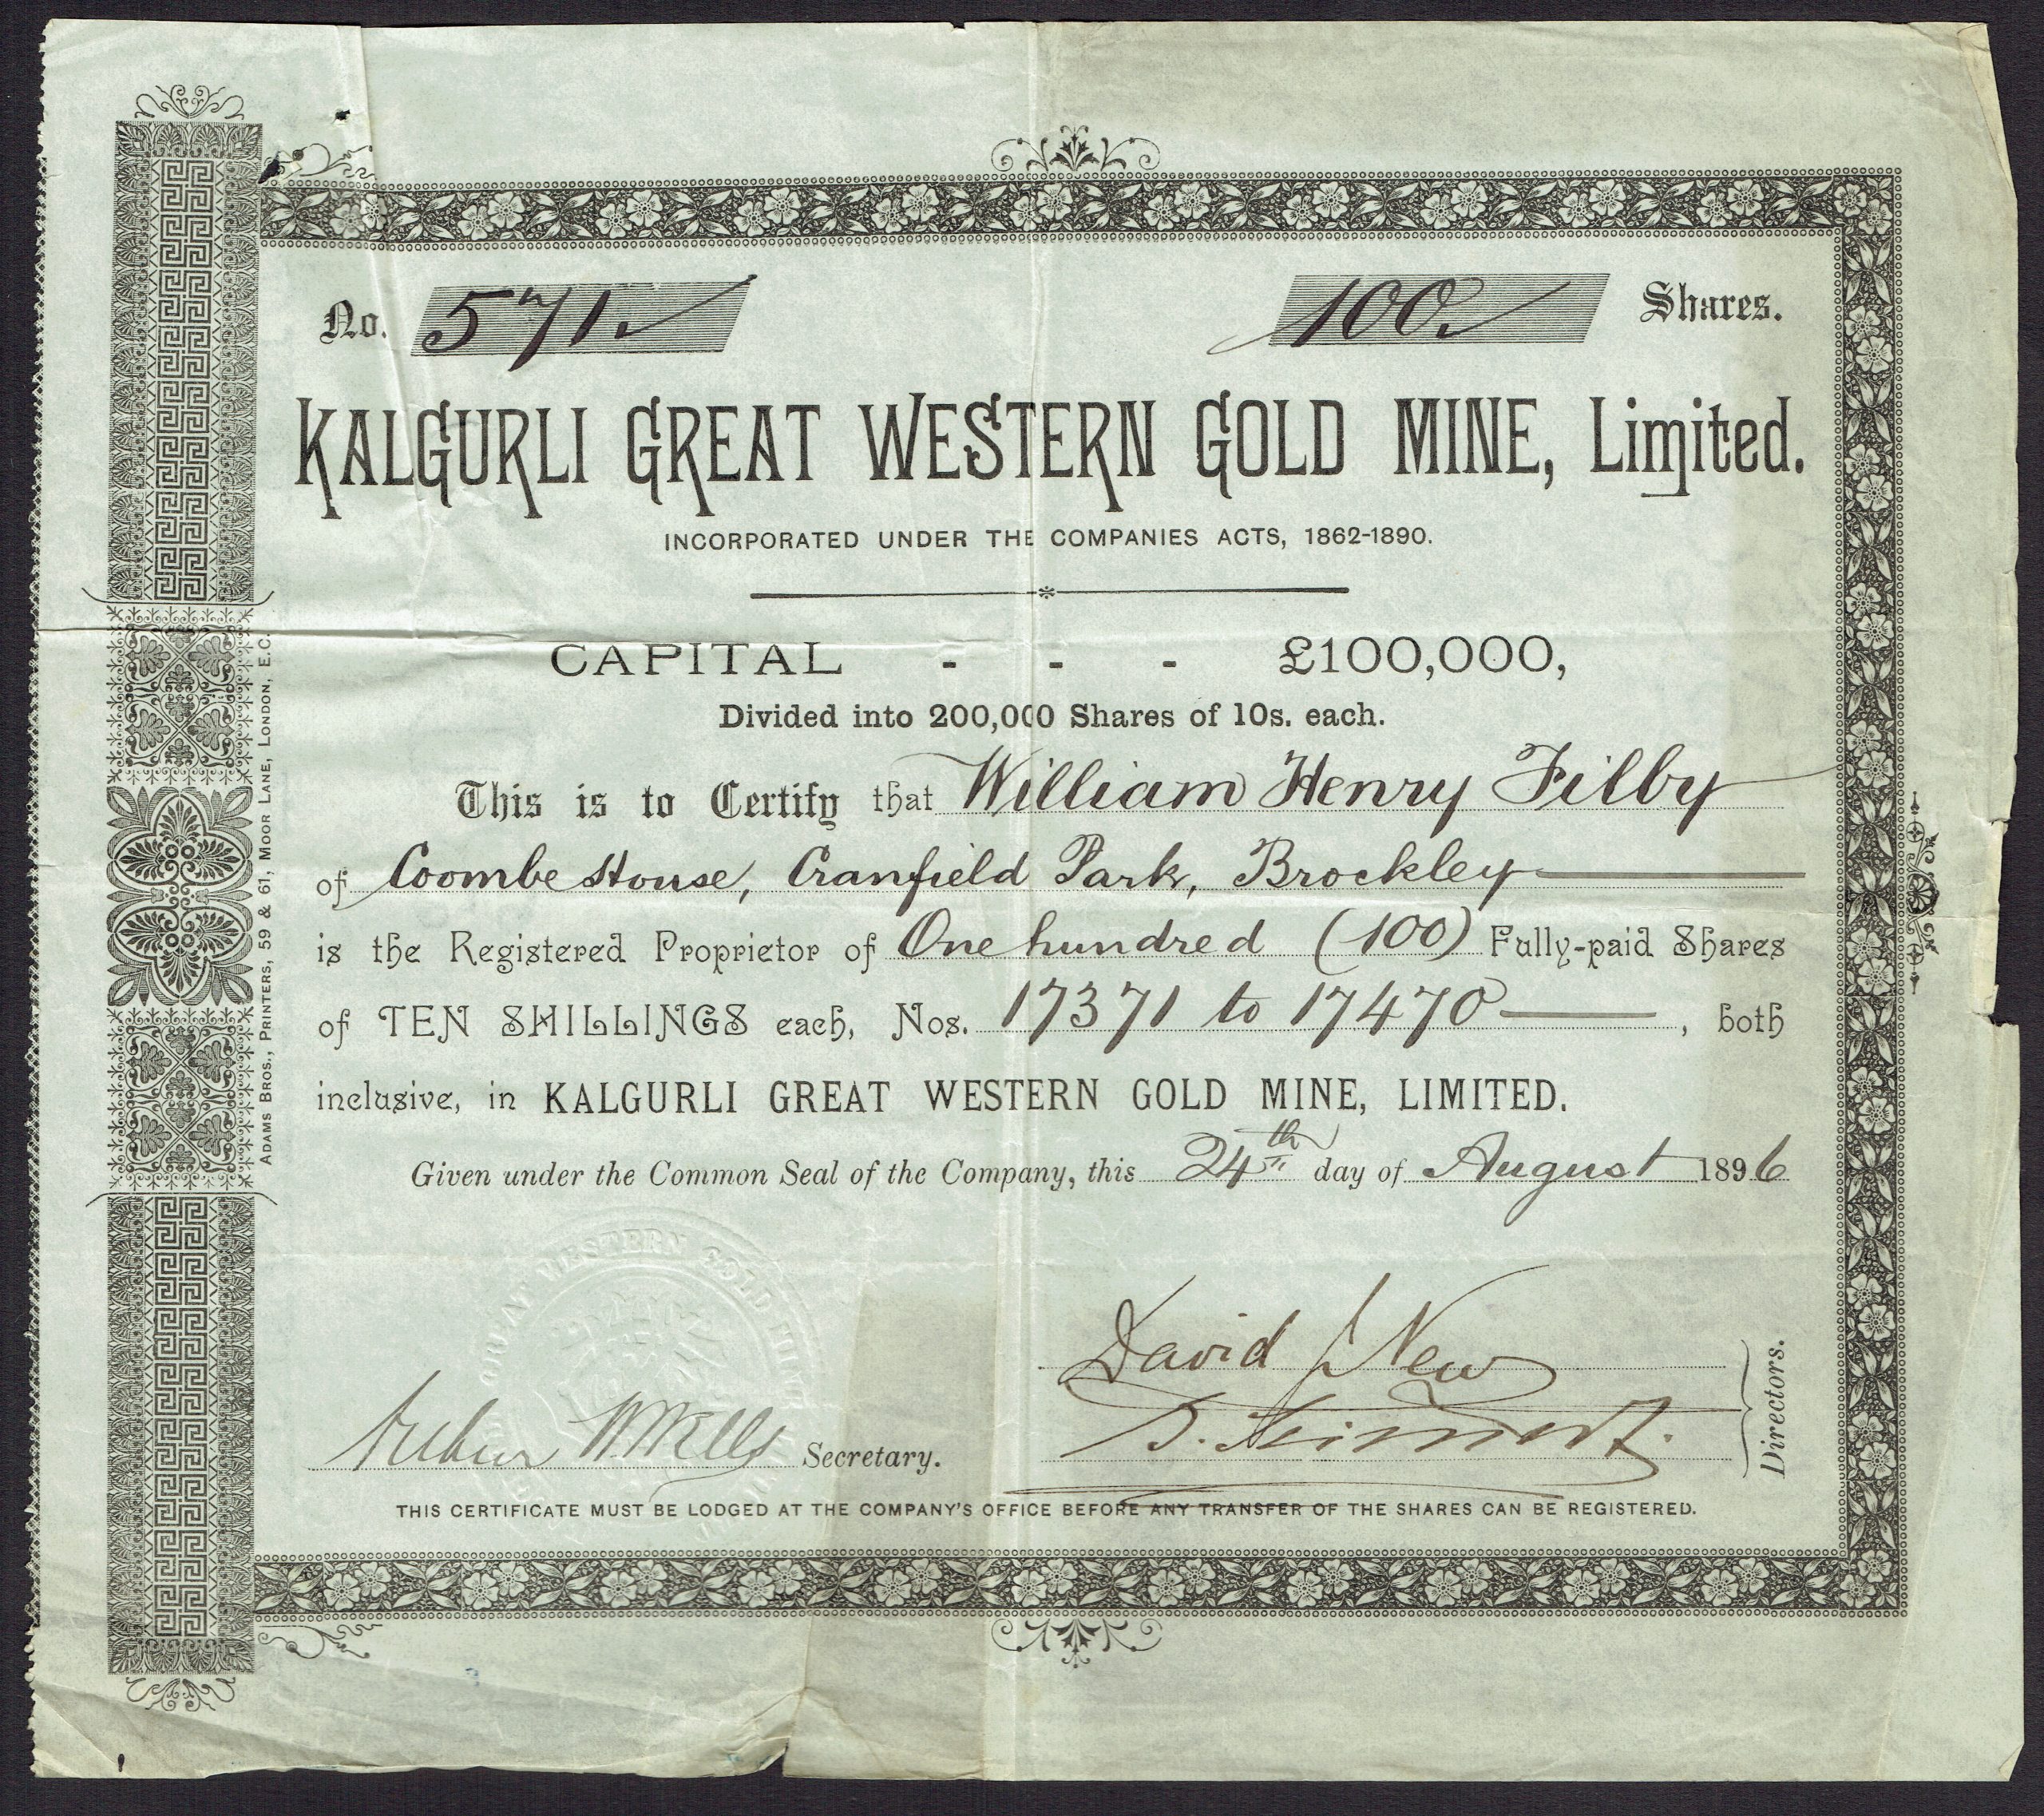 No. 571. 100. Shares.
KALGURLI GREAT WESTERN GOLD MINE, Limited.
INCORPORATED UNDER THE COMPANIES ACTS, 1862-1890.
CAPITAL - - - £100,000,
Divided into 200,000 Shares of 10s. each.
This is to Certify that William Henry Filby
of Coombe House, Cranfield Park, Brockley
is the Registered Proprietor of One hundred (100) Fully-paid Shares
of TEN SHILLINGS each, Nos. 17371 to 17470, both
inclusive, in KALGURLI GREAT WESTERN GOLD MINE, LIMITED.
Given under the Common Seal of the Company, this 24th day of August 1896
GREAT WESTERN GOLD MINE
David J New
Arthur W. Mells Secretary.
Directors.
THIS CERTIFICATE MUST BE LODGED AT THE COMPANY'S OFFICE BEFORE ANY TRANSFER OF THE SHARES CAN BE REGISTERED.
ADAMS BROS., PRINTERS, 59 & 61, MOOR LANE, LONDON, E.C.